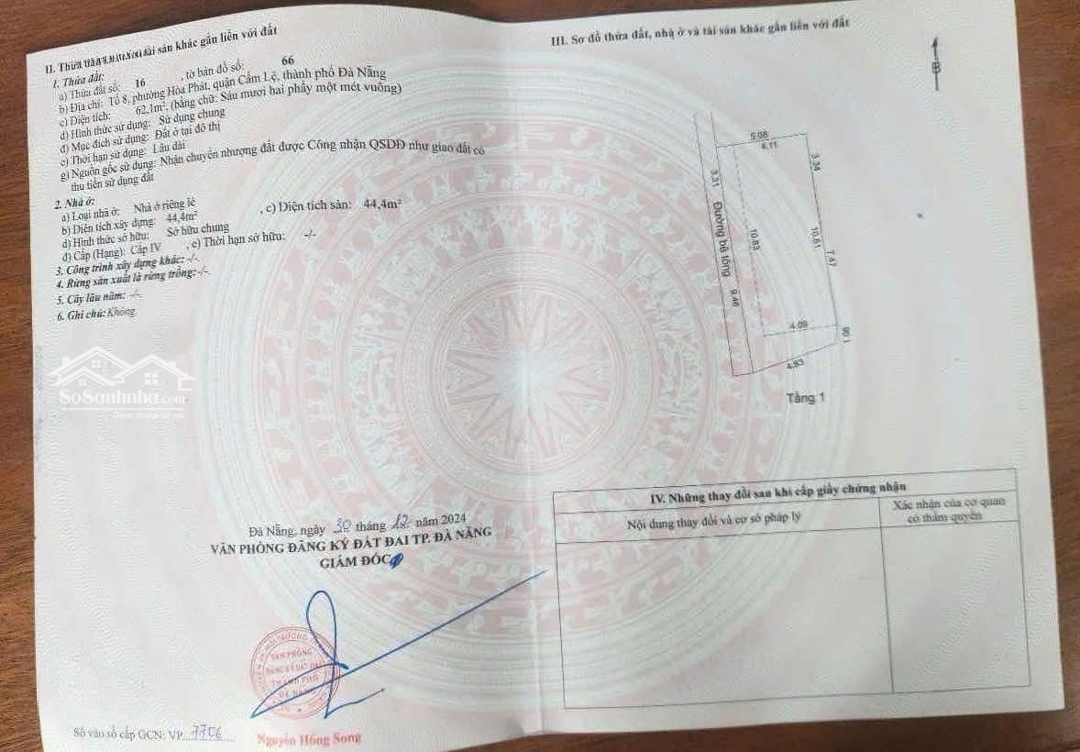 II. Thửa đất, nhà ở và tài sản khác gắn liền với đất
1. Thửa đất:
a) Thửa đất số: 16 , tờ bản đồ số: 66
b) Địa chỉ: Tổ 8, phường Hòa Phát, quận Cẩm Lệ, thành phố Đà Nẵng
c) Diện tích: 62,1m², (bằng chữ: Sáu mươi hai phẩy một mét vuông)
d) Hình thức sử dụng: Sử dụng chung
đ) Mục đích sử dụng: Đất ở tại đô thị
e) Thời hạn sử dụng: Lâu dài
g) Nguồn gốc sử dụng: Nhận chuyển nhượng đất được Công nhận QSDĐ như giao đất có
thu tiền sử dụng đất
2. Nhà ở:
a) Loại nhà ở: Nhà ở riêng lẻ
b) Diện tích xây dựng: 44,4m² , c) Diện tích sàn: 44,4m²
d) Hình thức sở hữu: Sở hữu chung
đ) Cấp (Hạng): Cấp IV , e) Thời hạn sở hữu: -/-
3. Công trình xây dựng khác: -/-
4. Rừng sản xuất là rừng trồng: -/-
5. Cây lâu năm: -/-
6. Ghi chú: Không
SoSanhnha.com
Đà Nẵng, ngày 30 tháng 12 năm 2024
VĂN PHÒNG ĐĂNG KÝ ĐẤT ĐAI TP. ĐÀ NẴNG
GIÁM ĐỐC
VĂN PHÒNG
ĐĂNG KÝ ĐẤT ĐAI
THÀNH PHỐ
ĐÀ NẴNG
Nguyễn Hồng Song
Số vào sổ cấp GCN: VP 7756
III. Sơ đồ thửa đất, nhà ở và tài sản khác gắn liền với đất
B
5.08
4.11
3.34
3.31
Đường bê tông
10.83
10.81
7.47
9.46
4.09
1.90
4.83
Tầng 1
IV. Những thay đổi sau khi cấp giấy chứng nhận
Nội dung thay đổi và cơ sở pháp lý
Xác nhận của cơ quan
có thẩm quyền